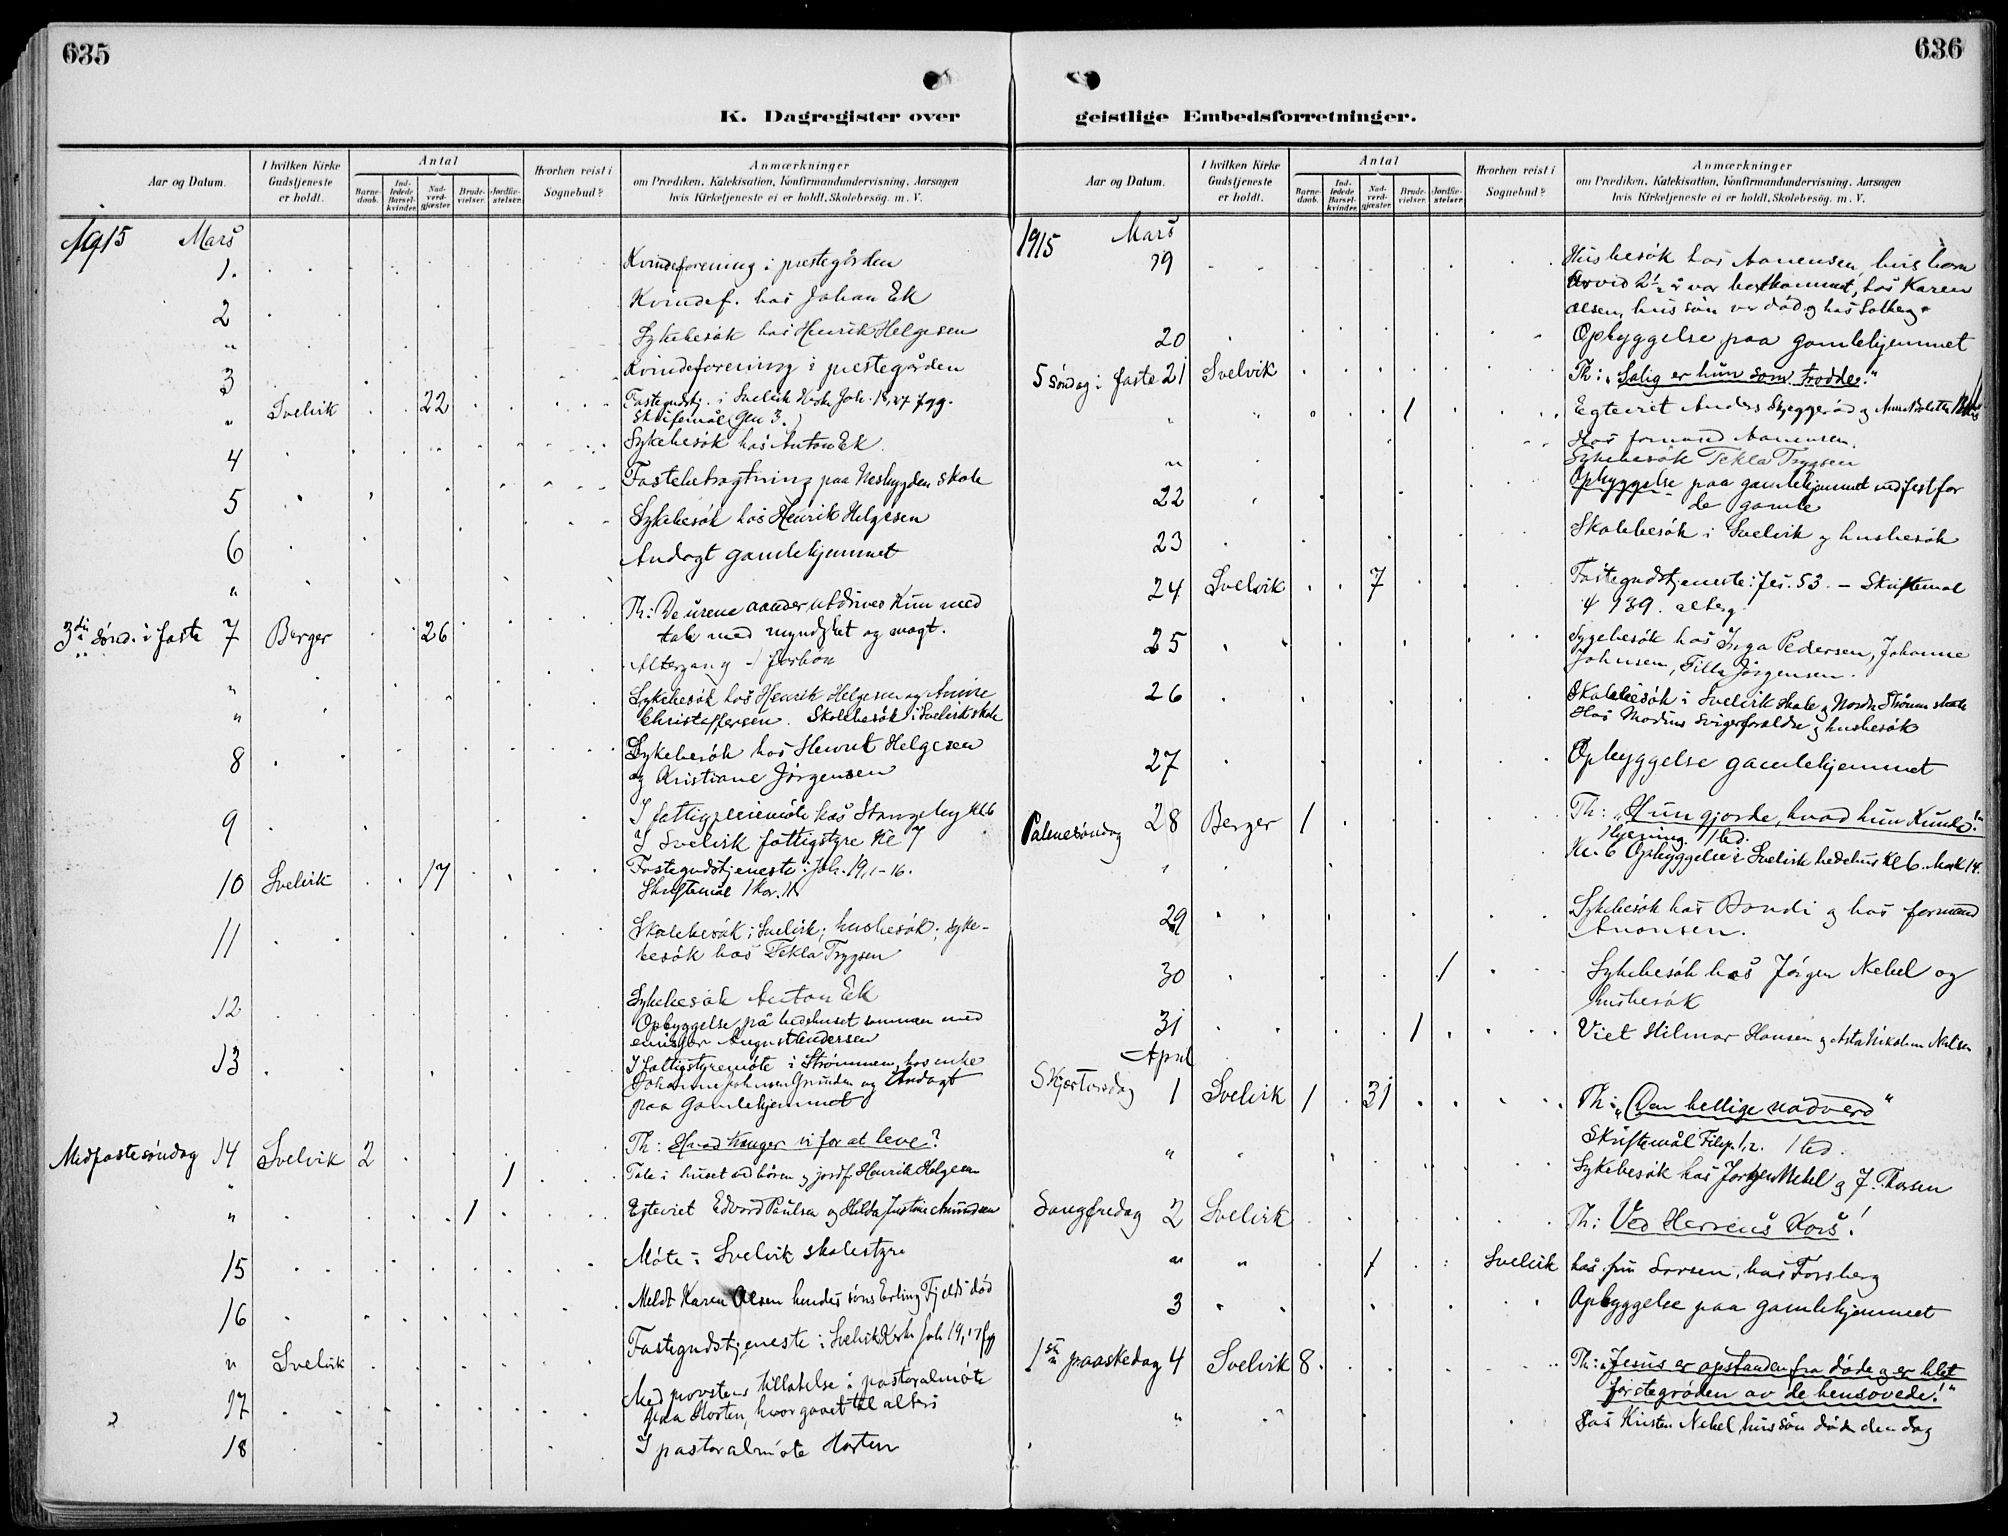 635
K. Dagregister over
Aar og Datum.
I hvilken Kirke
Gudstjeneste
er holdt.
Antal
Barne-
daab.
Ind-
ledede
Barsel-
kvinder.
Nad-
verd-
gjæster.
Brude-
vielser.
Jordfæ-
stelser.
Hvorhen reist i
Sognebud?
Anmærkninger
om Prædiken, Katekisation, Konfirmandundervisning, Aarsagen
hvis Kirketjeneste ei er holdt, Skolebesøg, m. V.
1915 Mars
1. Kvindeforening i prestegården
2 Kvindef. hos Johan Ek
" Sykebesök hos Henrik Helgesen
3 Kvindeforening i prestegården
" Svelvik 22 Fastegudstj. i Svelvik Kirke Joh. 18, fgg.
Skriftemål (Gen 3.)
4 Sykebesök hos Anton Ek
5 Fastebetragtning paa Nesbygden skole
6 Sykebesök hos Henrik Helgesen
" Andagt gamlehjemmet
3die sönd. i faste 7 Berger 26 Th: De urene aander utdrives kun med
tale med myndghet og magt.
" Altergang - forbön
" Sykebesök hos Henrik Helgesen og
Christoffersen. Skolebesök i Svelvik skole
8 Sykebesök hos Henrik Helgesen
og Kristiane Jörgensen
9 I hos Stangeby Kl 6
I Svelvik fattigstyre Kl 7
10 Svelvik 17 Fastegudstjeneste: Joh. 19, 1-16.
Skriftemål 1 Kor. 11
11 Skolebesök i Svelvik; husbesök; syke-
besök hos Tekla Trygsen
12 Sykebesök Anton Ek
Opbyggelse på bedehuset sammen med
August Andersen
13 I fattigstyremöte i Strömmen, hos enke
Johanne Johnsen Grunden og Andagt
paa Gamlehjemmet
Midfastesöndag 14 Svelvik 2 Th: Hvad trænger vi for at leve?
" 1 Tale i huset ved bören og jordf. Henrik Helgesen
" 1 Egteviet Edvard Paulsen og Hilda Justine Amundsen
15 Möte i Svelvik skolestyre
16 Meldt Karen Olsen hendes söns Erling Fjelds död
" Svelvik Fastegudstjeneste i Svelvik Kirke Joh 19, 17 fgg
17 Med provstens tillatelse i pastoralmöte
Horten, hvor gaaet til alters
18 I pastoralmöte Horten
636
geistlige Embedsforretninger.
Aar og Datum.
I hvilken Kirke
Gudstjeneste
er holdt.
Antal
Barne-
daab.
Ind-
ledede
Barsel-
kvinder.
Nad-
verd-
gjæster.
Brude-
vielser.
Jordfæ-
stelser.
Hvorhen reist i
Sognebud?
Anmærkninger
om Prædiken, Katekisation, Konfirmandundervisning, Aarsagen
hvis Kirketjeneste ei er holdt, Skolebesøg, m. V.
1915 Mars
19 Husbesök hos Aanensen, hvis barn
Arvid var bortkommet, hos Karen
Olsen, hvis sön var död og hos Solberg.
20 Opbyggelse paa gamlehjemmet
5 söndag i faste 21 Svelvik Th: "Salig er hun som trodde."
" " 1 Egteviet Anders Skjeggeröd og Anna
Hos formand Aanensen.
" Sykebesök Tekla Trygsen
22 " Opbyggelse paa gamlehjemmet ved fest for
de gamle
23 Skolebesök i Svelvik og husbesök
24 Svelvik 7 Fastegudstjeneste: Jes. 53. - Skriftemal
139.
25 Sygebesök hos Inga Pedersen, Johanne
Johnsen, Tilla Jörgensen.
26 Skolebesök i Svelvik skole og Nordre Strömm skole
Hos Modins svigerforældre og husbesök
27 Opbyggelse gamlehjemmet
Palmesöndag 28 Berger 1 Th: "Hun gjorde, hvad hun kunde!"
" Kl. 6 Opbyggelse i Svelvik bedehus Kl 6. Mark 14.
29 Sykebesök hos Bondi og hos formand
Anonsen.
30 1 Sykebesök hos Jörgen Nebel og
husbesök
31 1 Viet Hilmar Hansen og Asta Nikoline Nilsen
April
Skjærtorsdag 1 Svelvik 1 31 Th: "Den hellige nadverd"
Skriftemål Filip. 1,2.
" " Sykebesök hos Jörgen Nebel og J. Thorsen
Langfredag 2 Svelvik Th: Ved Herrens Kors!
" " 1 Svelvik hos fru Larsen, hos Forsberg
3 Opbyggelse paa gamlehjemmet
1ste paaskedag 4 Svelvik 8 Th: "Jesus er opstanden fra döde og er blet
förstegröden av de hensovede!"
" Hos Kirsten Nebel, hvis sön döde den dag